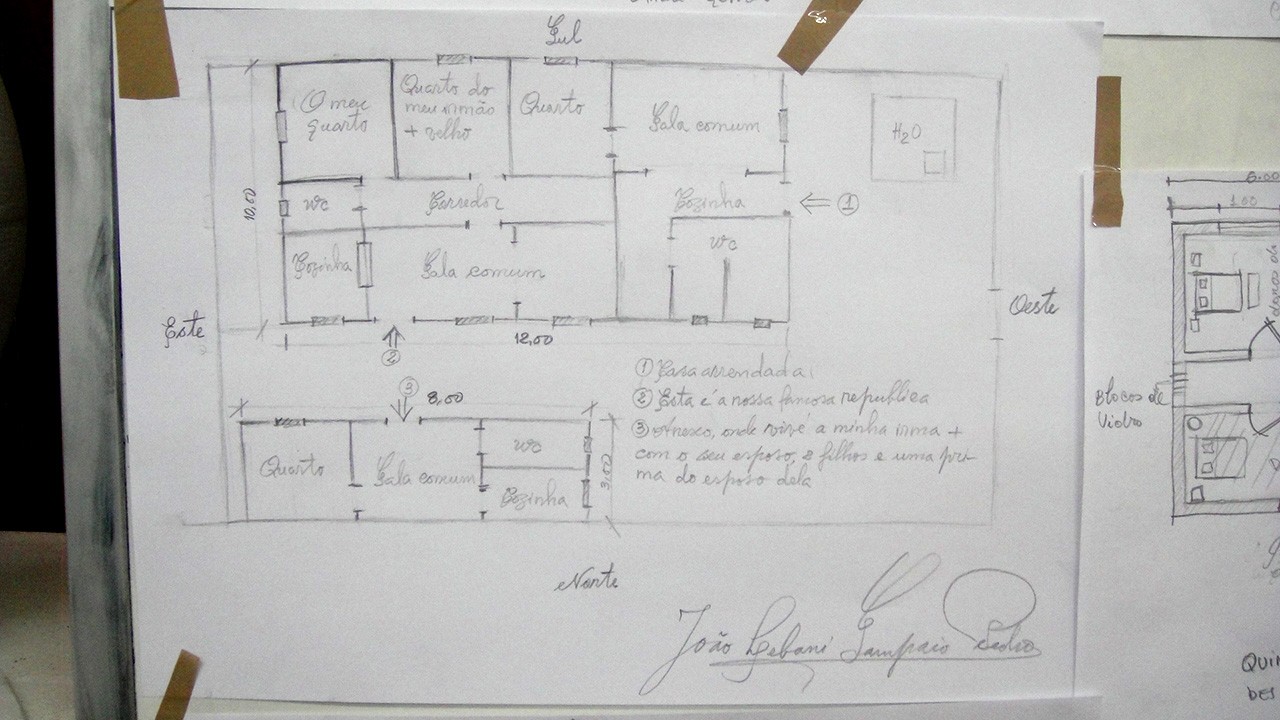 Sul
O meu
quarto
Quarto do
meu irmão
+ velho
Quarto
Sala comum
H2O
10,00
WC
Corredor
Cozinha
1
WC
Cozinha
Sala comum
Este
Oeste
2
12,00
3
8,00
1 Casa arrendada
2 Esta é a nossa famosa republica
3 Anexo, onde vive a minha irma +
com o seu esposo, 2 filhos e uma pri
ma do esposo dela
Quarto
Sala comum
WC
Cozinha
3,00
Norte
João Sebani Sampaio Pedro
6.00
1.00
Blocos de
Vidro